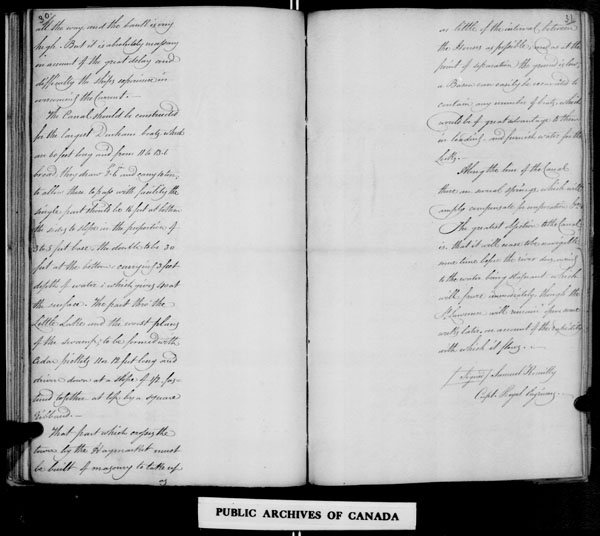 30
all the way, and the bank is very
high. But it is absolutely necessary
on account of the great delay and
difficulty the ships experience in
the Current. —
The Canal should be constructed
for the largest Durham boats, which
are 60 feet long and from 11 to 13.6
broad they draw and carry
to allow these to pass with facility the
single part should be 16 feet at bottom
the sides to slope in the proportion of
3 to 5 feet base, the double to be 30
feet at the bottom, carrying 3 feet
depth of water; which gives at
the surface. The part thro' the
Little Lake and the worst places
of the swamp, to be formed with
Cedar picketts 11 or 12 feet long and
driven down at a slope of fas-
tened together at top by a square
ribband. —
That part which crosses the
town by the Haymarket must
be built of masonry to take up
as
31
as little of the interval between
the Houses as possible, and as at the
point of separation the ground is low,
a Basin can easily be excavated to
contain any number of boats, which
would be of great advantage to them
in loading, and furnish water for the
Locks. —
Along the line of the Canal
there are several springs which will
amply compensate for evaporation &c.
The greatest objection to the Canal
is that it will cease to be navigable
some time before the river does, owing
to the water being stagnant which
will freeze immediately, though the
St. Lawrence will remain open some
weeks later, on account of the rapidity
with which it flows. —
(Signed) Samuel Romilly
Capt. Royal Engineers. —
PUBLIC ARCHIVES OF CANADA